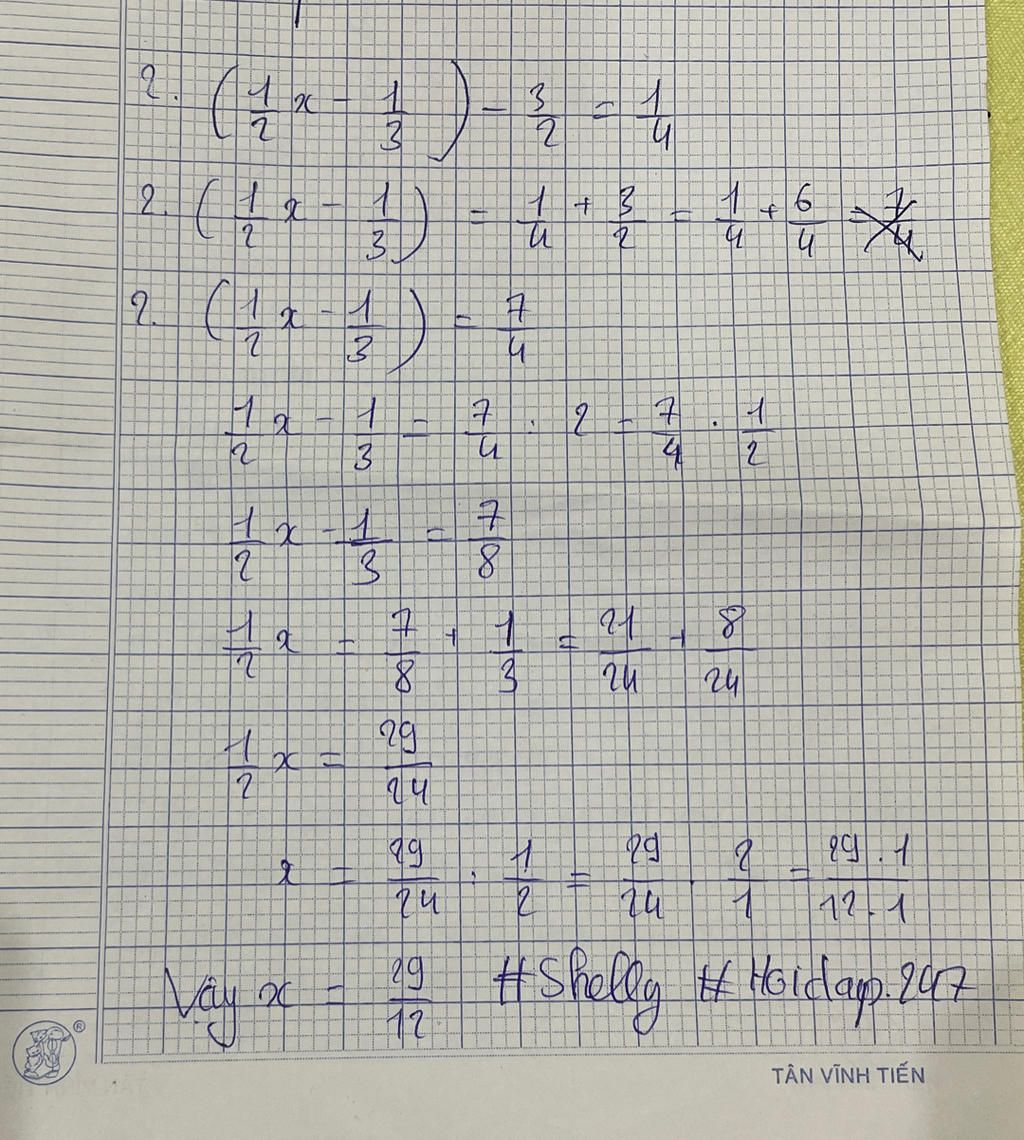 2. (1/2 x - 1/3) - 3/2 = 1/4
2. (1/2 x - 1/3) = 1/4 + 3/2 = 1/4 + 6/4 = 7/4
2. (1/2 x - 1/3) = 7/4
1/2 x - 1/3 = 7/4 : 2 = 7/4 . 1/2
1/2 x - 1/3 = 7/8
1/2 x = 7/8 + 1/3 = 21/24 + 8/24
1/2 x = 29/24
x = 29/24 : 1/2 = 29/24 . 2/1 = 29 . 1/12 . 1
Vậy x = 29/12 #Shelly #Hoidap.247
®
TÂN VĨNH TIẾN